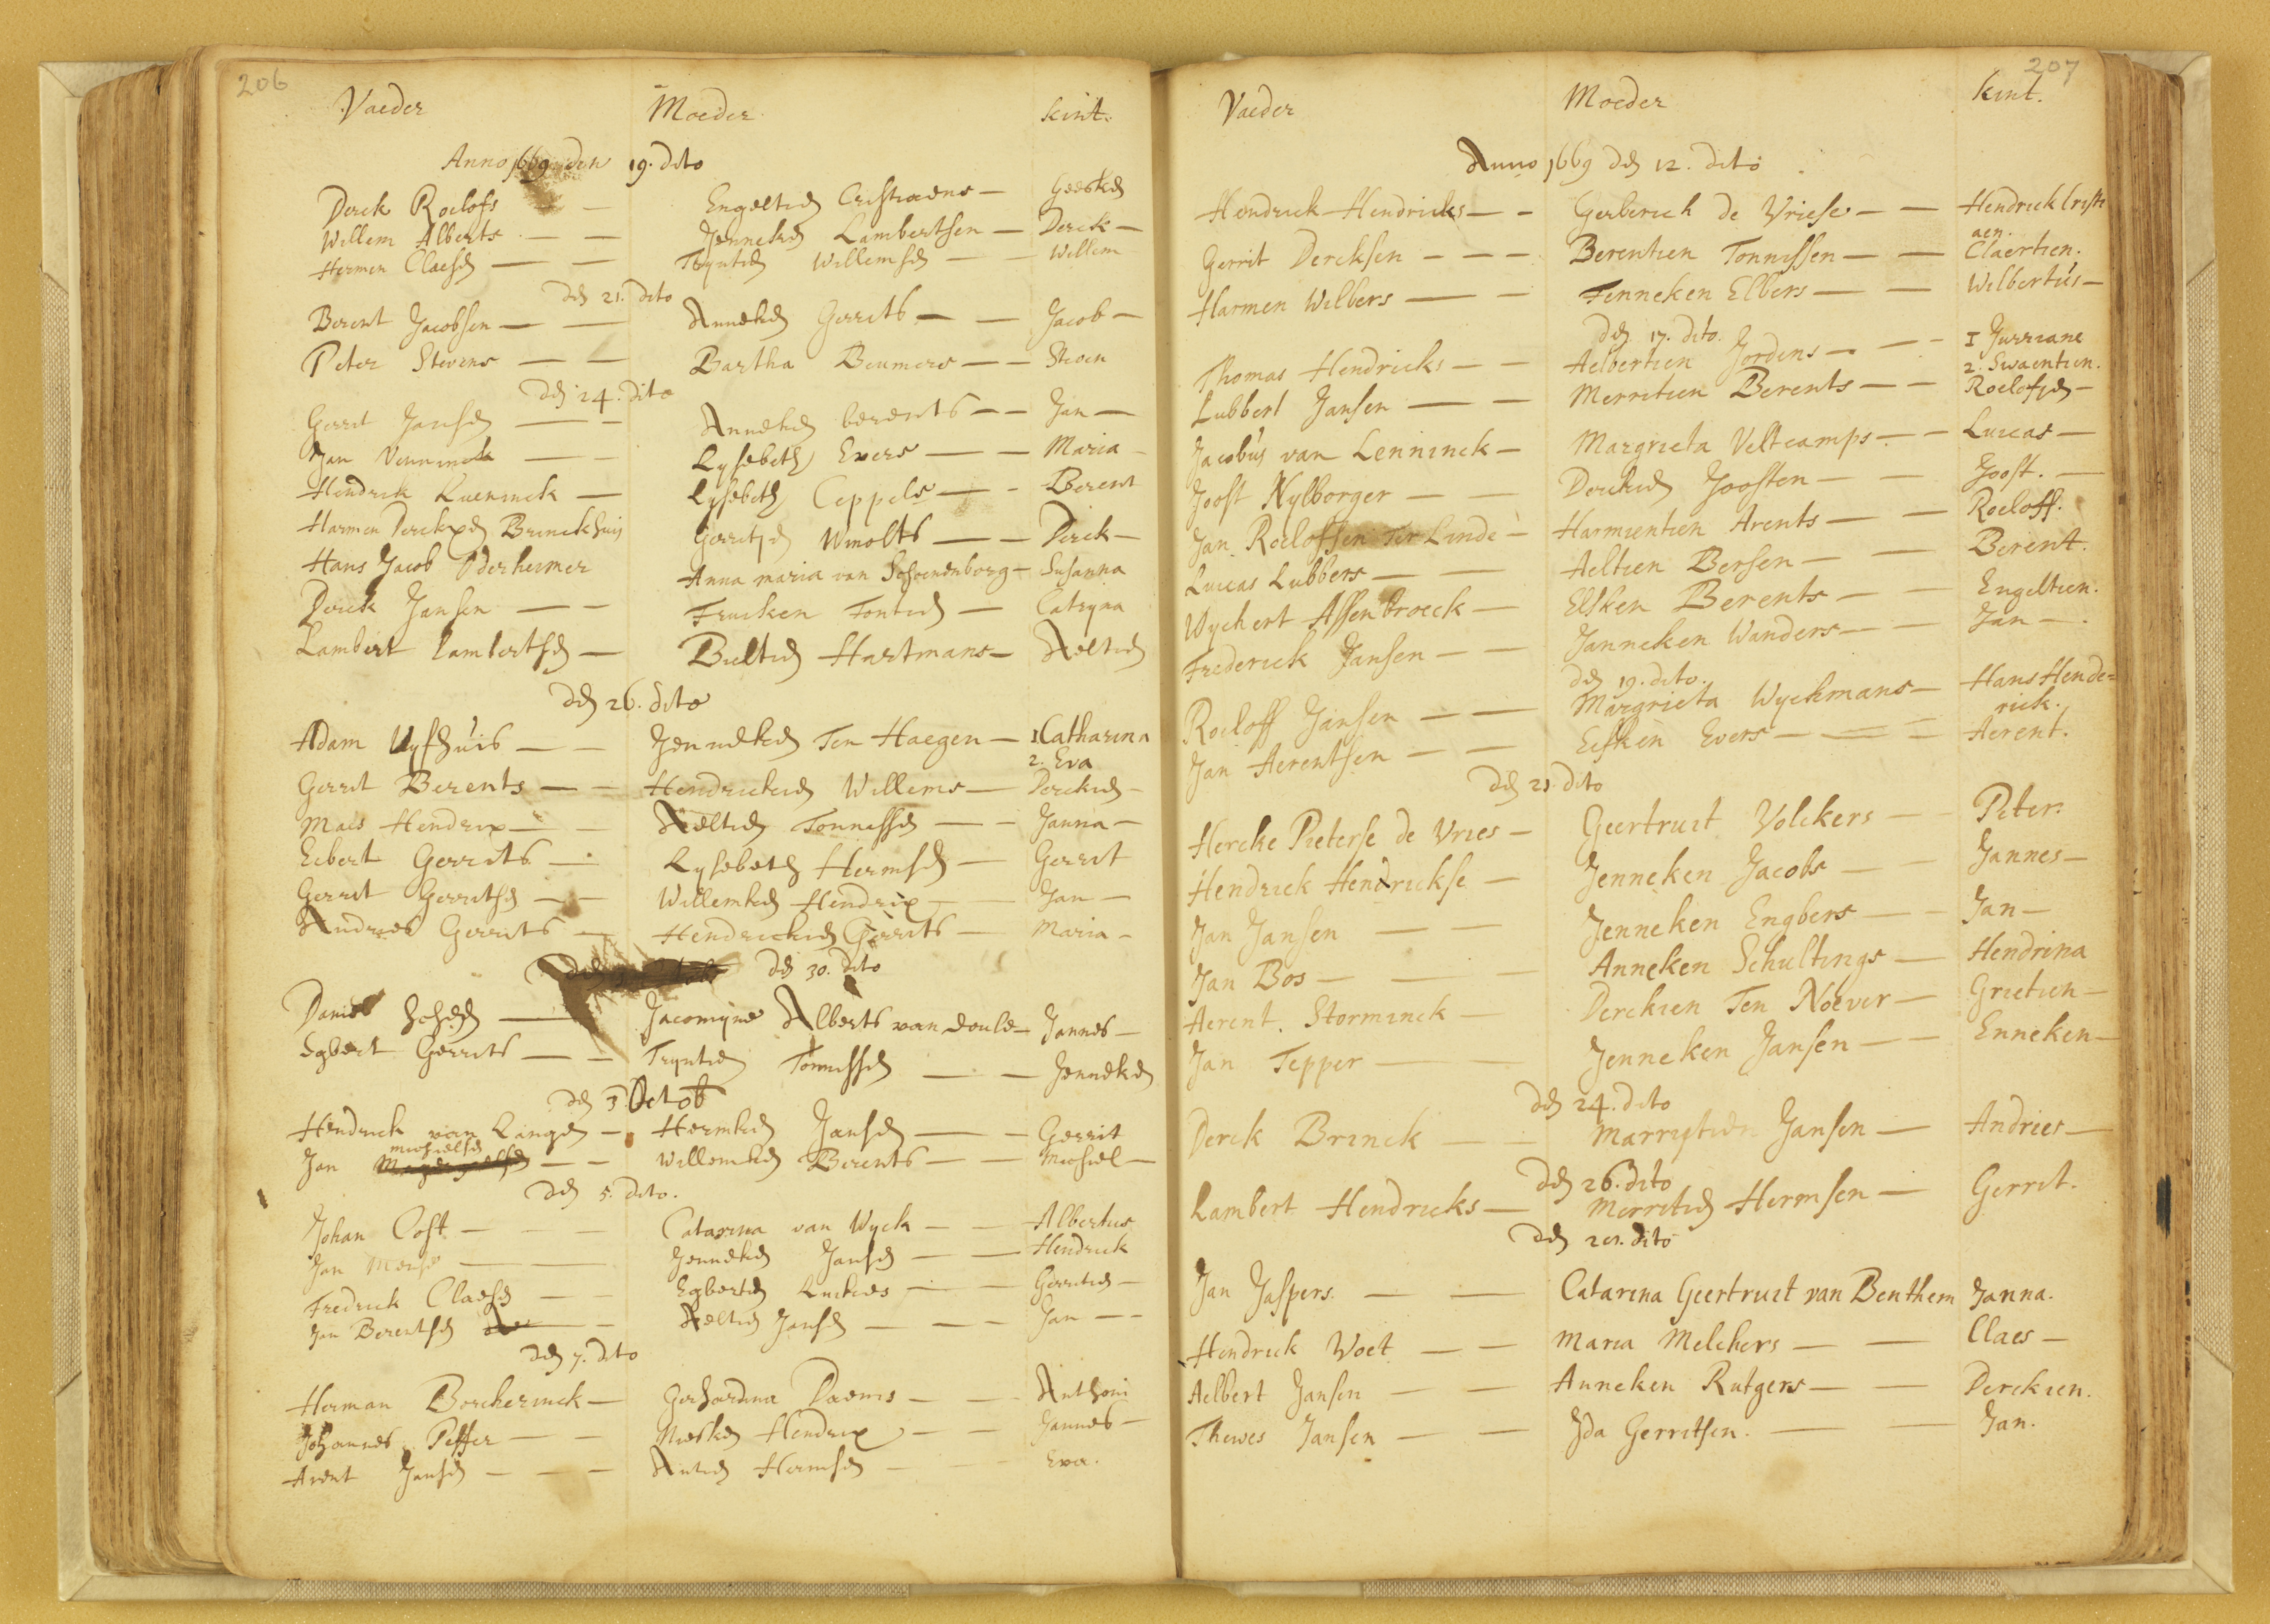 206
Vaeder Moeder kint.
Anno 1669 den 19. dito
Derck Roelofs — Engeltien Cristiaens — Geesken
Willem Alberts — — Jenneken Lambertsen — Derck —
Hermen Claesen — — Tryntien Willemsen — — Willem
den 21. dito
Berent Jacobsen — — Anneken Gerrits — — Jacob —
Peter Stevens — — Bartha Beumers — — Steven
den 24. dito
Gerrit Jansen — — Anneken berents — — Jan —
Jan — — Lysebeth Evers — — Maria —
Hendrick — Lysebeth Ceppels — - Berent
Harmen Derckxen Brinckhuis Gerritjen Wolts — — Derck —
Hans Jacob Anna maria van — Susanna
Derck Jansen — — — Catryna
Lambert Lambertsen — Hartmans — Aeltien
den 26. dito
Adam Vyfhuis — — Jenneken Ten Haegen — 1 Catharina
2. Eva
Gerrit Berents — — Hendricken Willems — Dercken —
Maes Hendrix — — Aeltien Tonnissen — — Janna —
Ecbert Gerrits — Lysebeth Hermsen — Gerrit
Gerrit Gerritsen — — Willemken Hendrix — — Jan —
Andries Gerrits — Hendricken Gerrits — Maria —
den 30. dito
Daniel — Jacomyne Alberts van — Jannes —
Egbert Gerrits — — Tryntien Tonnissen — — Jenneken
den 3 Octob
Hendrick van Langen — Hermken Jansen — — Gerrit
michielsen
Jan — — Willemken Berents — — Michiel —
den 5. dito.
Johan Oost — — — Catarina van Wyck — — Albertus
Jan — — Jenneken Jansen — — Hendrick
Fredrick Claesen — — Egbertien — — Gerritien —
Jan Berentsen — Aeltien Jansen — — — Jan — —
den 7. dito
Herman Borcherinck — Gerhardina Daems — — Anthoni
Johannes Peffer — — Hendrix — — Jannes —
Arent Jansen — — — Antien Hermsen — — Eva.
207
Vaeder Moeder kint.
Anno 1669 den 12. dito
Hendrick Hendricks — — Gerberich de Vriese — — Hendrick Cristi
aen.
Gerrit Dercksen — — — Berentien Tonnissen — — Claertien.
Harmen Wilbers — — Fenneken Elbers — — Wilbertus —
den 17. dito.
Thomas Hendricks — — Aelbertien Jordens — — — 1 Jurriane
2. Swaentien.
Lubbert Jansen — — Merritien Berents — — Roelofjen —
Jacobus van Lenninck — Margrieta Veltcamps — — Lucas —
Joost Nylborger — — Dercken Joosten — — Joost. —
Jan Roeloffsen Ter Linde — Harmientien Arents — — Roeloff.
Lucas Lubbers — — Aeltien Bersen — — Berent.
Wychert Assenbroeck — Elsken Berents — — Engeltien.
Frederick Jansen — — Janneken Wanders — — Jan — .
den 19. dito.
Roeloff Jansen — — Margrieta Wyckmans — Hans Hende=
rick.
Jan Aerentsen — — Eefken Evers — — — Aerent.
den 21. dito
Hercke Pieterse de Vries — Geertruit Volckers — — Peter.
Hendrick Hendrickse — Jenneken Jacobs — — Jannes —
Jan Jansen — — Jenneken Engbers — — Jan —
Jan Bos — — — Anneken Schultings — Hendrina
Aerent. Storminck — Derckien Ten Noever — Grietien —
Jan Tepper — — Jenneken Jansen — — Enneken —
den 24. dito
Derck Brinck — — Marrytien Jansen — Andries —
den 26. dito
Lambert Hendricks — Merritien Hermsen — Gerrit.
den dito
Jan Jaspers. — — Catarina Geertruit van Benthem Janna.
Hendrick Voet — — Maria Melchers — — Claes —
Aelbert Jansen — — Anneken Rutgers — — Derckien.
Thewes Jansen — — Ida Gerritsen. — — Jan.